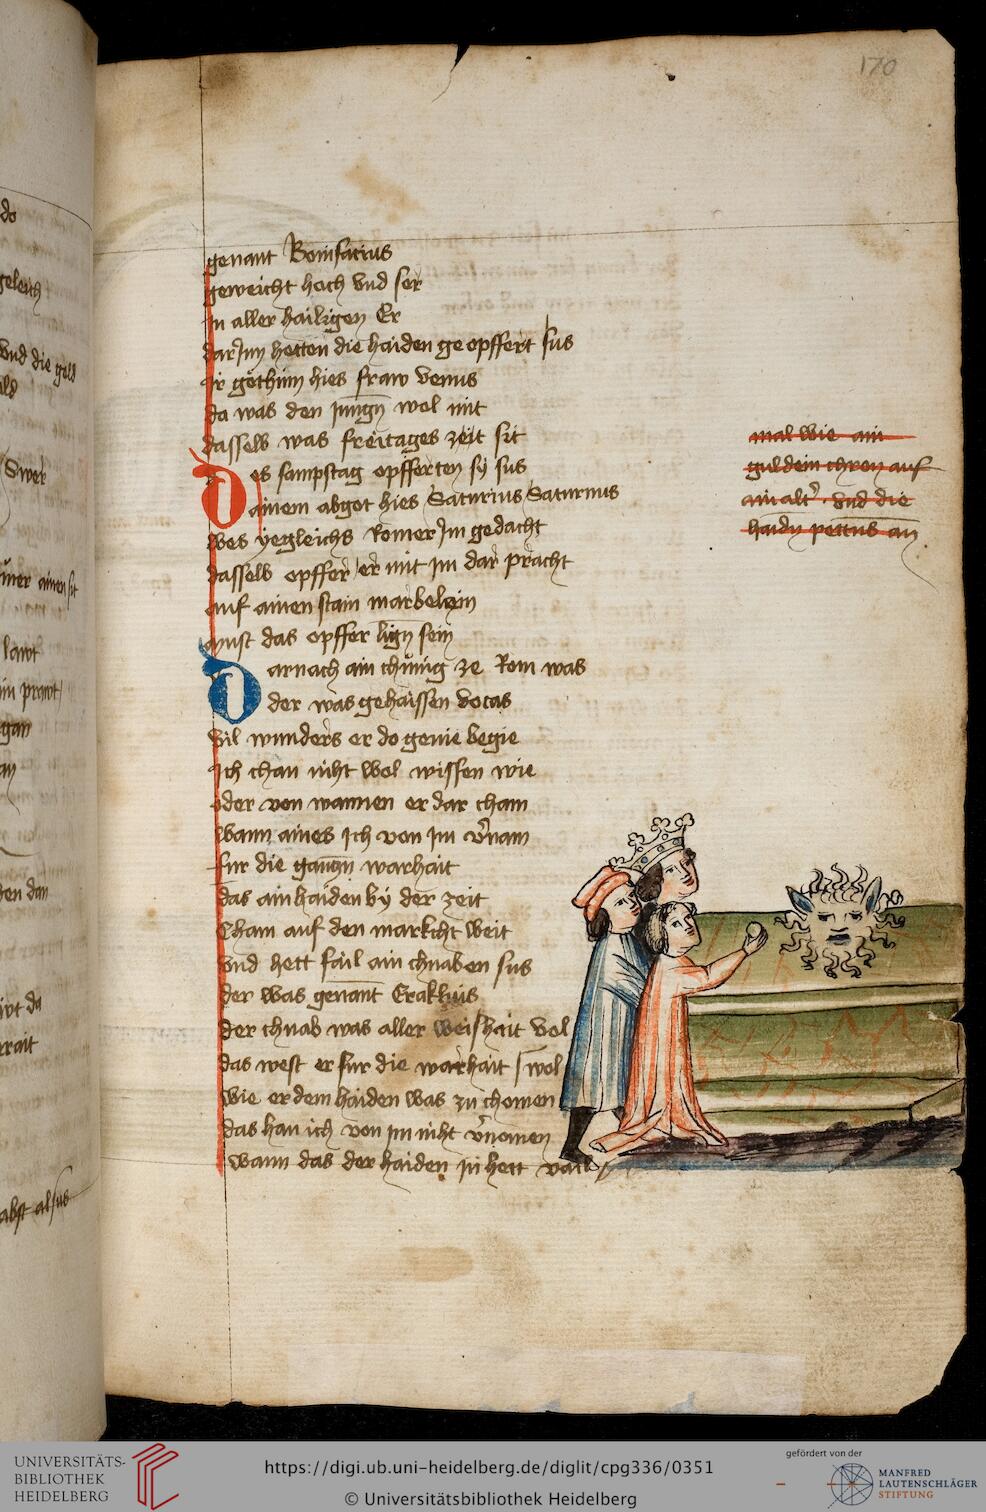 170
genant Bonifacius
geweicht hoch vnd ser
in aller hailigen Er
darInn hetten die haiden geopffert sus
ir göthinn hies fraw venus
da was den jungn wol mit
dasselb was freitages zeit sit
Des sampstag opfferten sÿ sus
ainem abgot hies Saturius Saturnus
wes yegleichs Romer Im gedacht
dasselb opffer er mit im dar pracht
auf ainen stain marbelein
must das opffer lign sein
Darnach ain chünig ze Rom was
der was gehaissen vocas
vil wunders er do genie begie
Ich chan niht wol wissen wie
oder von wannen er dar cham
wann aines Ich von im vernam
fur die ganczn warhait
das ain haiden bÿ der zeit
Cham auf den markcht weit
vnd hett fail ain chnaben sus
der was genant Eraklius
der chnab was aller weishait vol
das west er fur die warhait wol
wie er dem haiden was zu chomen
das han ich von im niht vernomen
wann das der haiden in hett vail
mal wie ain
guldein chron auf
ain alter vnd die
haidn pettns an
do
geleich
vnd die
Swer
ainen sit
lawt
gan
den dan
abst alsus
UNIVERSITÄTS-
BIBLIOTHEK
HEIDELBERG
https://digi.ub.uni-heidelberg.de/diglit/cpg336/0351
© Universitätsbibliothek Heidelberg
gefördert von der
MANFRED
LAUTENSCHLÄGER
STIFTUNG